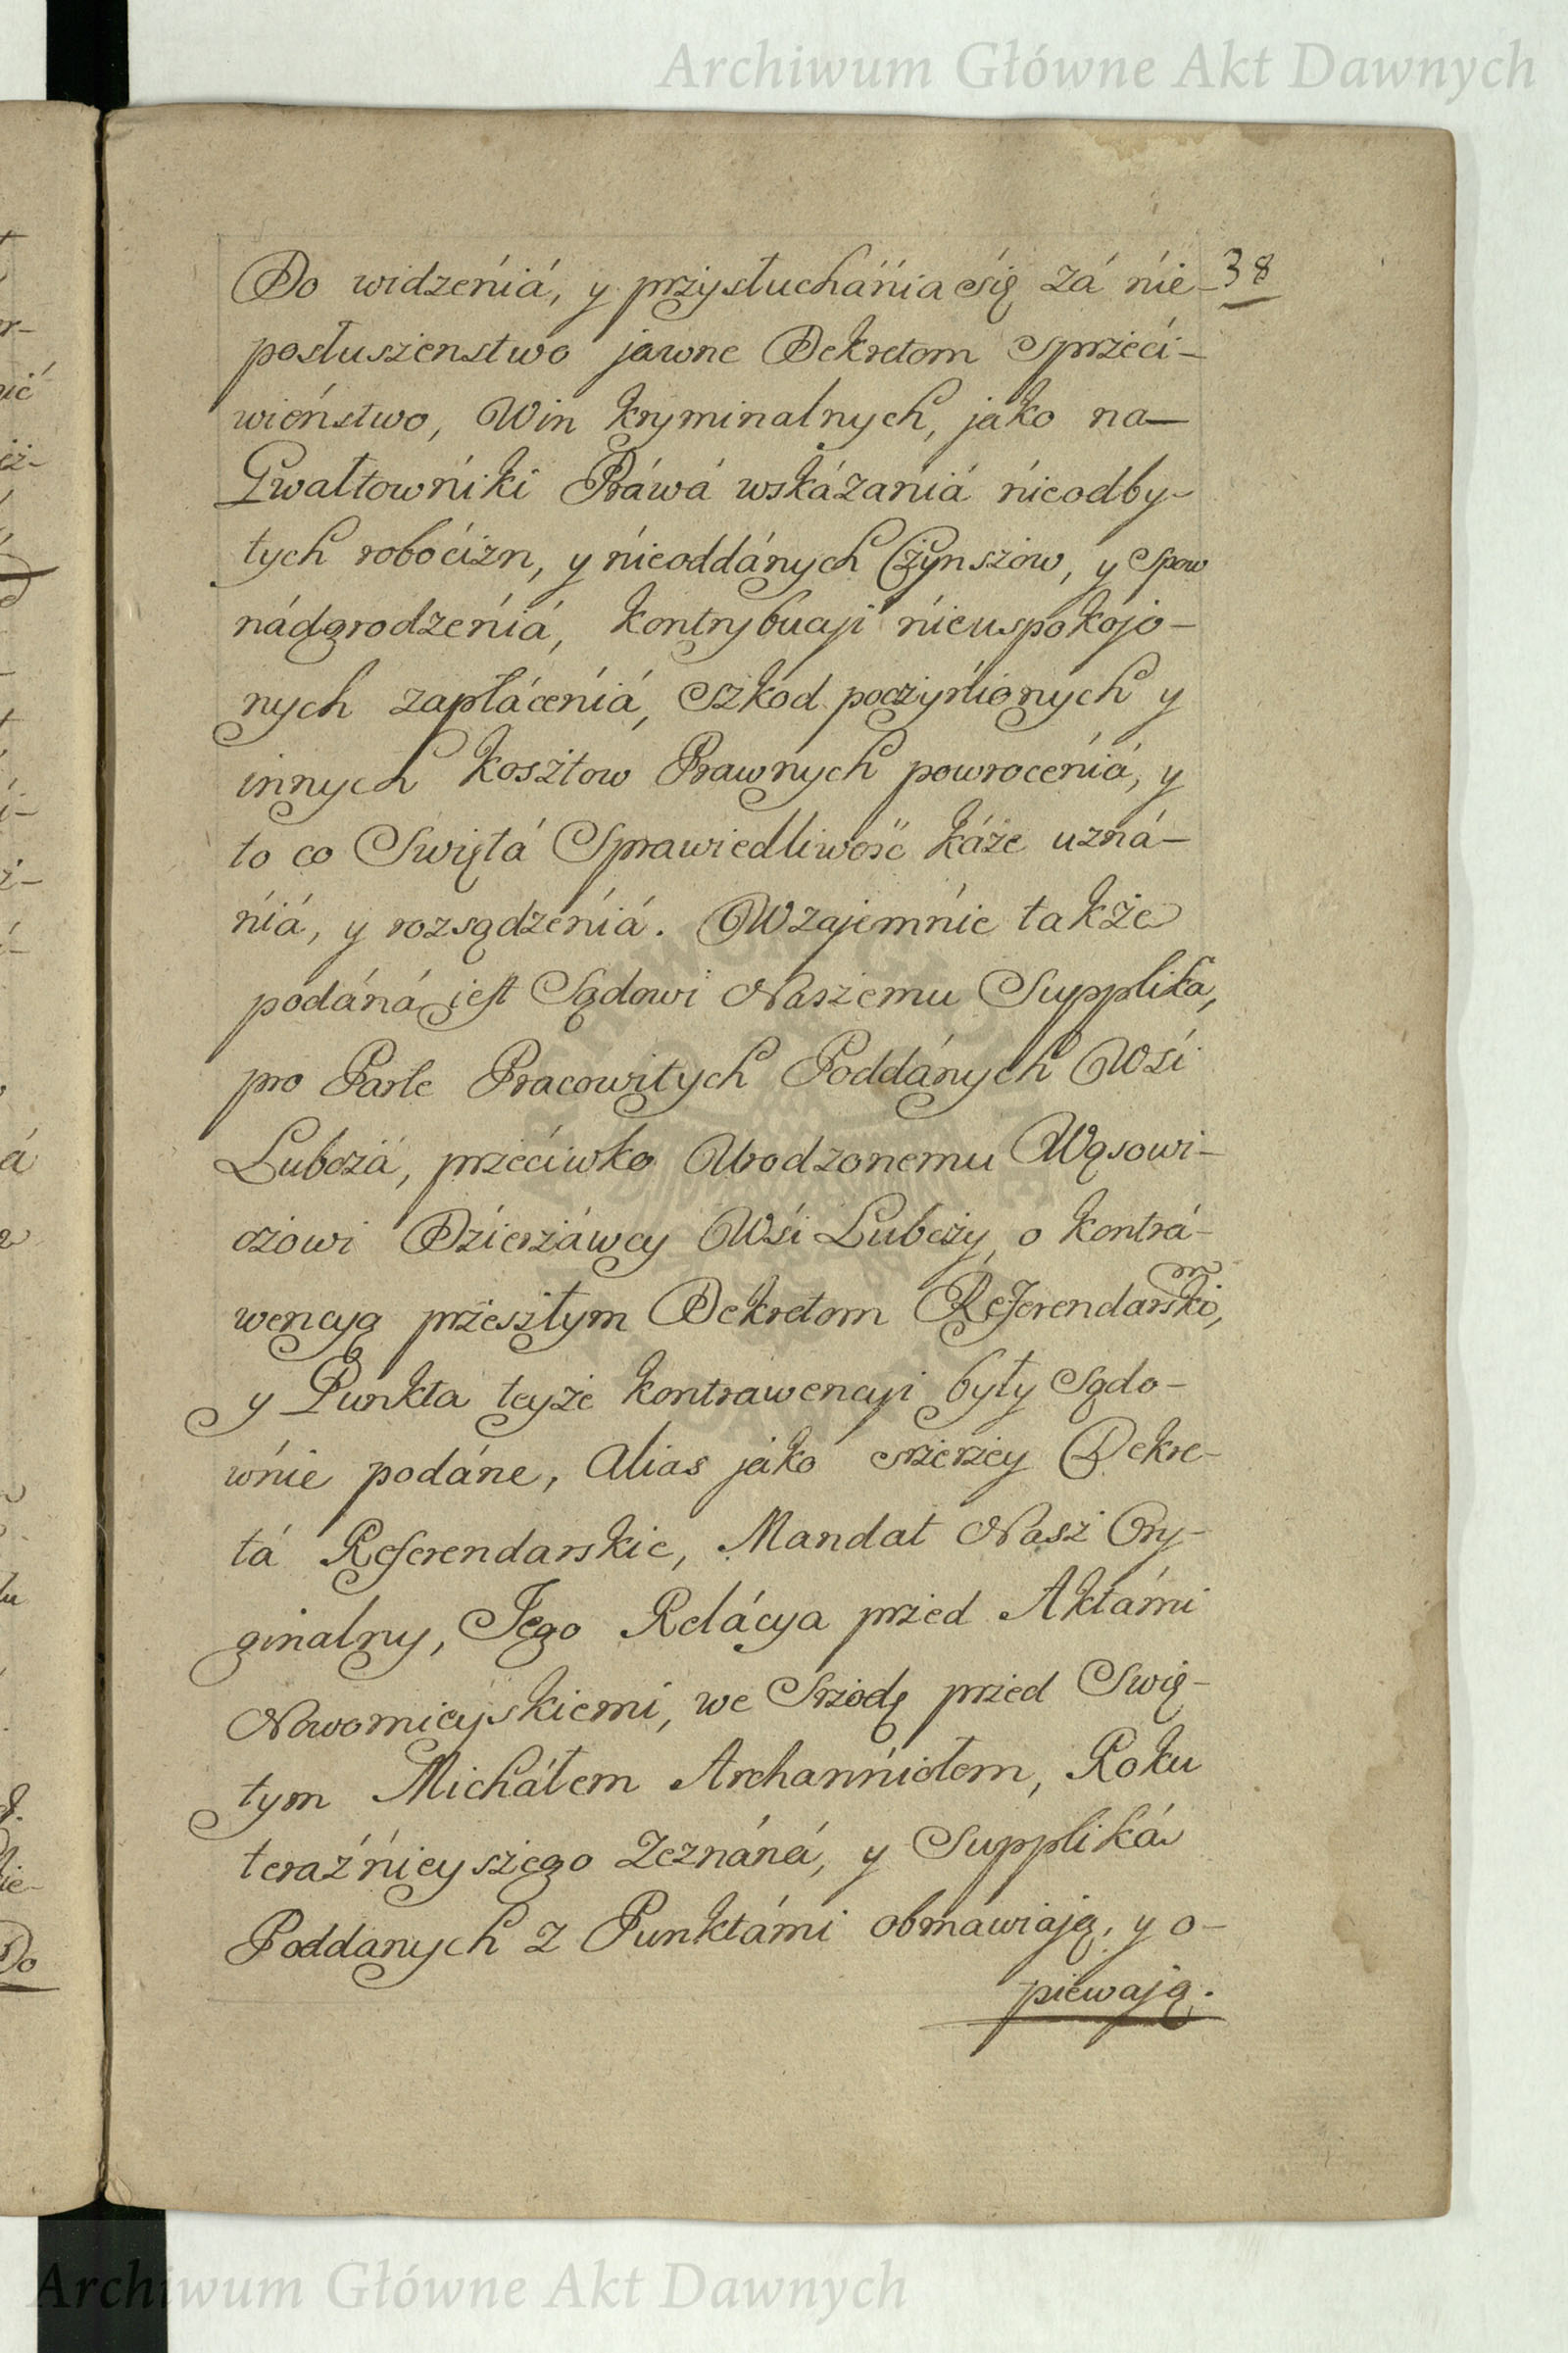 Archiwum Główne Akt Dawnych
38
Do widzeńiá, y przysłucháńia śię zá nie-
posłuszenstwo jawne Dekretom sprzeći-
wieństwo, Win kryminalnych, jako na-
Gwałtowńiki Práwá wskázaniá ńieodby-
tych roboćizn, y ńieoddánych Czynszow, y Spow
nádgrodzeńiá, kontrybucyi ńieuspokojo-
nych zapłáceńiá, szkod poczyńionych y
innych kosztow Prawnych powroceńiá, y
to co Swiętá Sprawiedliwość káże uzná-
ńiá, y rozsądzeńiá. Wzajemńie także
podáná jest Sądowi Naszemu Supplika,
pro Parte Pracowitych Poddánych Wśi
Lubczá, przećiwko Urodzonemu Wąsowi-
czowi Dzierżáwcy Wśi Lubczy, o kontrá-
wencyą przeszłym Dekretom Referendarskim,
y Punkta teyże kontrawencyi były Sądo-
wńie podáne, Alias jáko szerzey Dekre-
tá Referendarskie, Mandat Nasz Ory-
ginalny, Jego Relácya przed Aktámi
Nowomieyskiemi, we Srzodę przed Swię-
tym Michałem Archanńiołem, Roku
teraźńieyszego Zeznáná, y Suppliká
Poddanych z Punktámi obmawiają, y o-
piewają.
Archiwum Główne Akt Dawnych